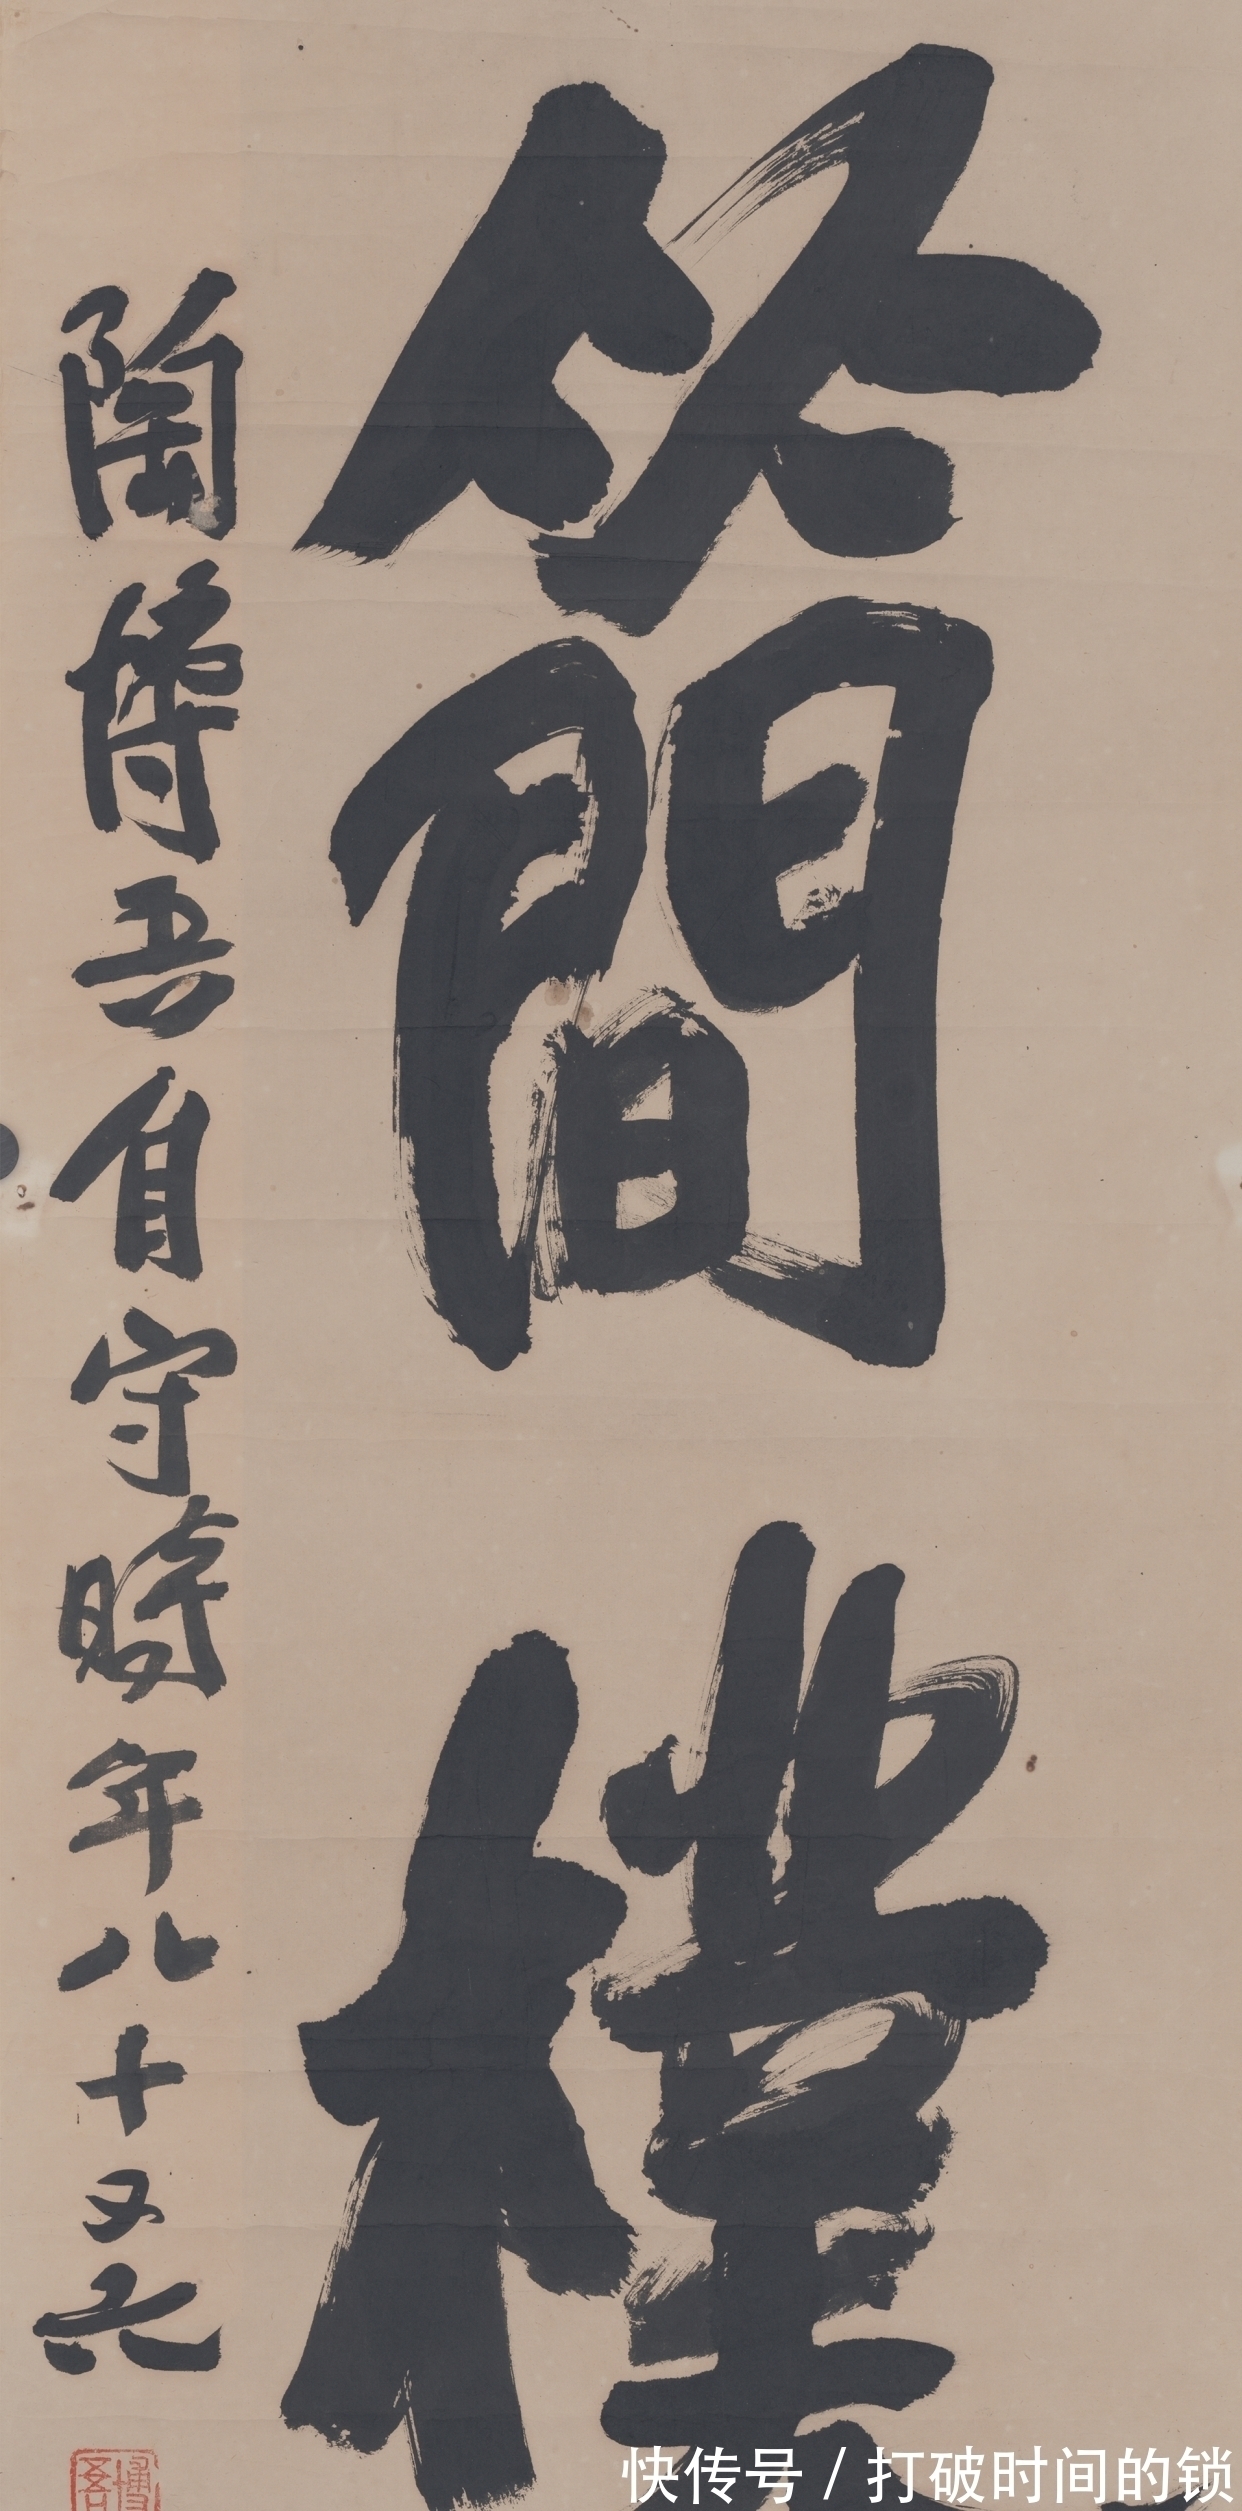 簡樸
陶博吾自守時年八十又六
博吾
快传号 / 打破时间的锁